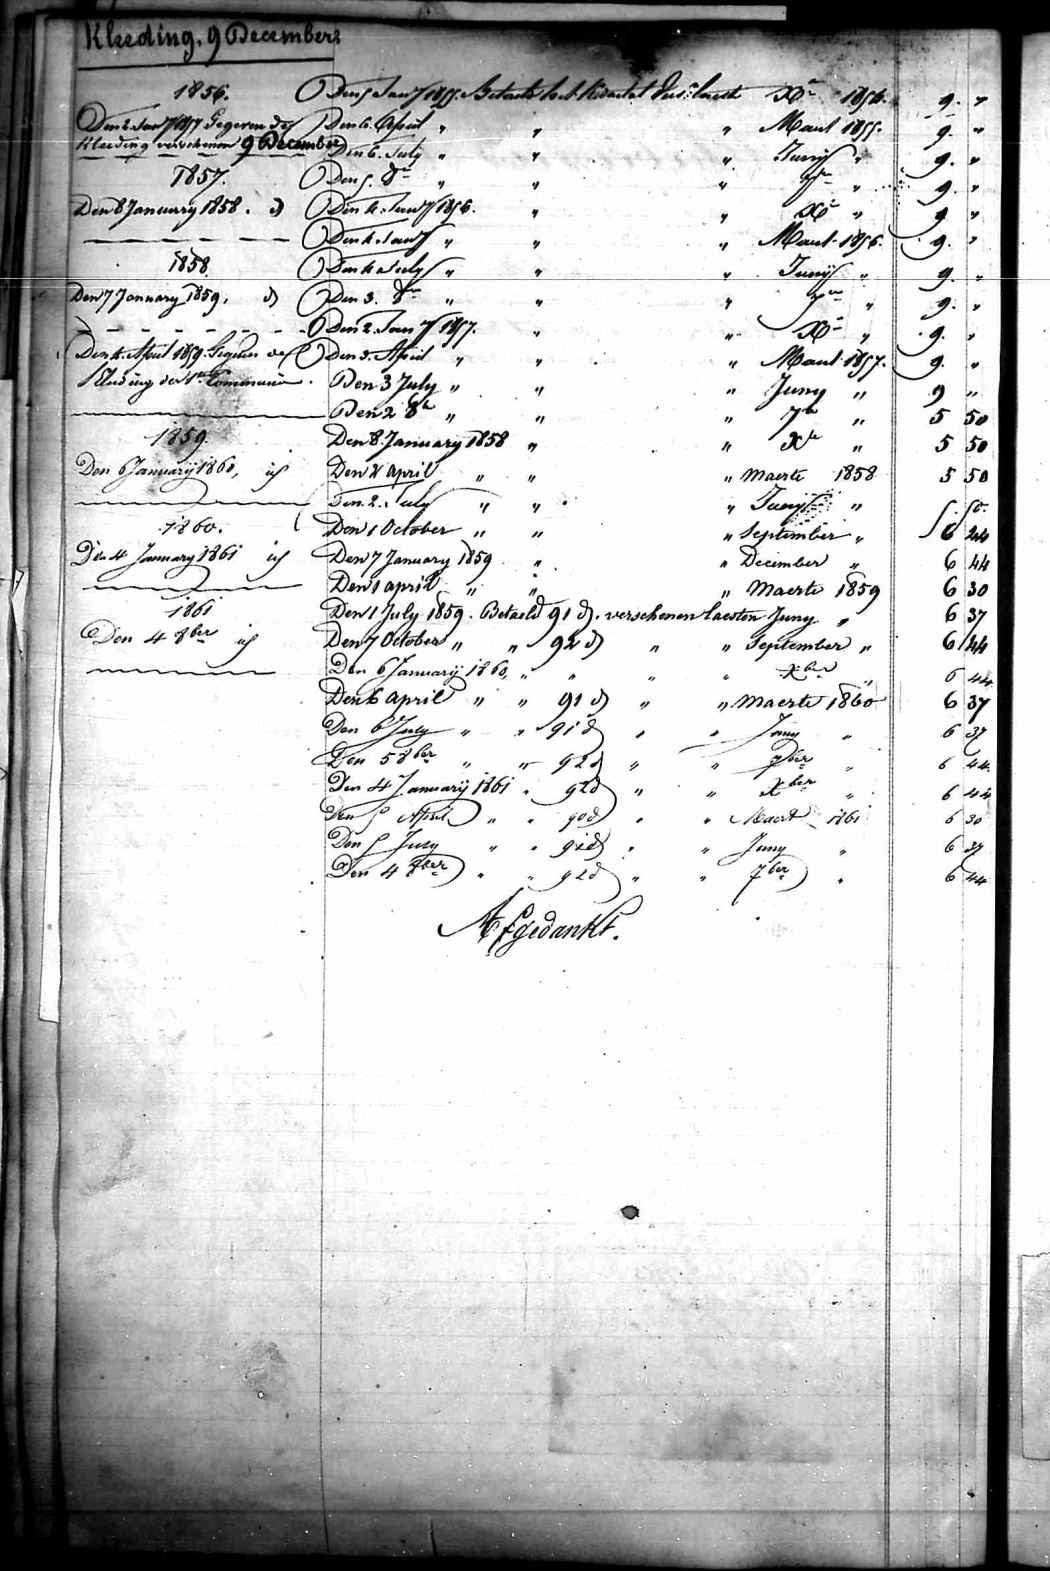 Kleeding. 9 December
1856.
Den 2 Janʸ 1857 Gegeven de
Kleeding verschenen 9 December
1857.
Den 8 January 1858. d
1858.
Den 7 January 1859, d
Den 4 April 1859. Gegeven de
Kleeding der 1ᵉ Communie.
1859.
Den 6 Januarij 1860, id
1860.
Den 4 January 1861 id
1861
Den 4 8ber id
Den 5 Janʸ 1855. Betaald het Kwartaal laest Xʳ 1854. 9. "
Den 6. April " " " Maert 1855. 9. "
Den 6. July " " " Junij " 9. "
Den 5. 8ʳ " " " 7ʳ " 9. "
Den 4. Janʸ 1856. " " Xʳ " 9 "
Den 4. " " " Maert 1856. 9. "
Den 4 July " " " Junij " 9. "
Den 3. 8ʳ " " " 7ʳ " 9. "
Den 2. Janʸ 1857. " " Xʳ " 9. "
Den 3. April " " " Maert 1857. 9. "
Den 3 July " " " Juny " 9 "
Den 2 8ʳ " " " 7ʳ " 5 50
Den 8. January 1858 " " Xʳ " 5 50
Den 2 april " " " maerte 1858 5 50
Den 2. July " " " Junij " 5. 50.
Den 1 October " " " September " 6 44
Den 7 January 1859 " " December " 6 44
Den 1 april " " " Maerte 1859 6 30
Den 1 July 1859. Betaeld 91 d. verschenen laesten Juny " 6 37
Den 7 October " " 92 d " " September " 6 44
Den 6 Januarij 1860, " " " " xber " 6 44
Den 6 april " " 91 d " " Maerte 1860 6 37
Den 6 July " " 91 d " " Juny " 6 37
Den 5 8ber " " 92 d " " 7ber " 6 44
Den 4 Januarij 1861 " 92 d " " xber " 6 44
Den 5 April " " 90 d " " Maert 1861 6 30
Den 5 July " " 91 d " " Juny " 6 37
Den 4 8ber " " 92 d " " 7ber " 6 44
Afgedankt.